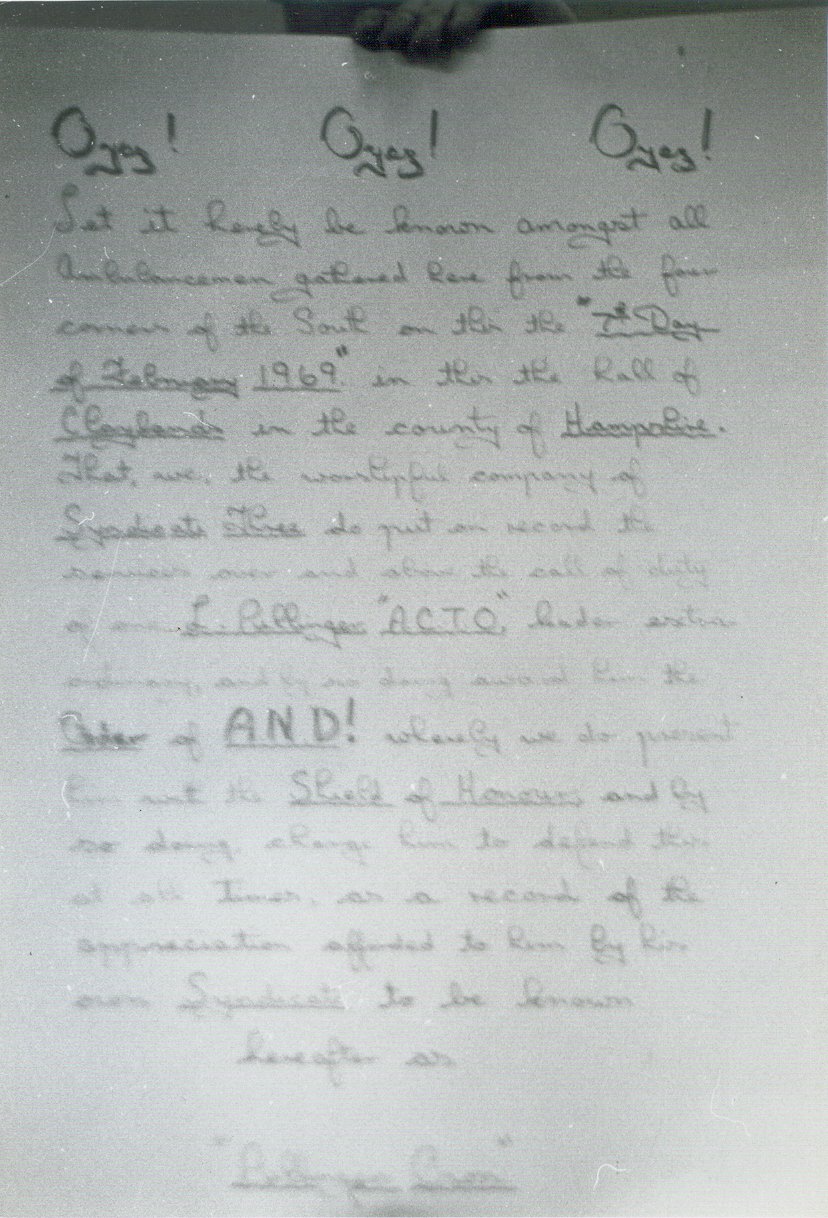 Oyez! Oyez! Oyez!
Let it hereby be known amongst all
Ambulancemen gathered here from the four
corners of the South on this the "7th Day
of February 1969" in this the hall of
Claylands in the county of Hampshire.
That, we, the worshipful company of
Syndicate Three do put on record the
services over and above the call of duty
of one L. Pellinger "A.C.T.O." leader extra-
ordinary, and by so doing award him the
Order of AND! whereby we do present
him with the Shield of Honour, and by
so doing, charge him to defend this
at all Times, as a record of the
appreciation afforded to him by his
own Syndicate to be known
hereafter as